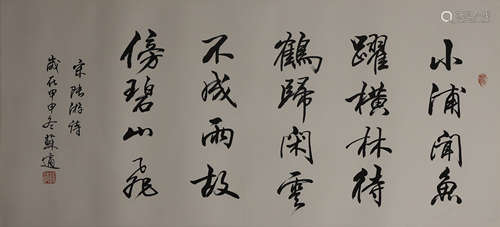 小浦闻鱼
躍横林待
鶴歸闲雲
不成雨故
傍碧山飛
宋陆游诗
歲在甲申冬蘇適